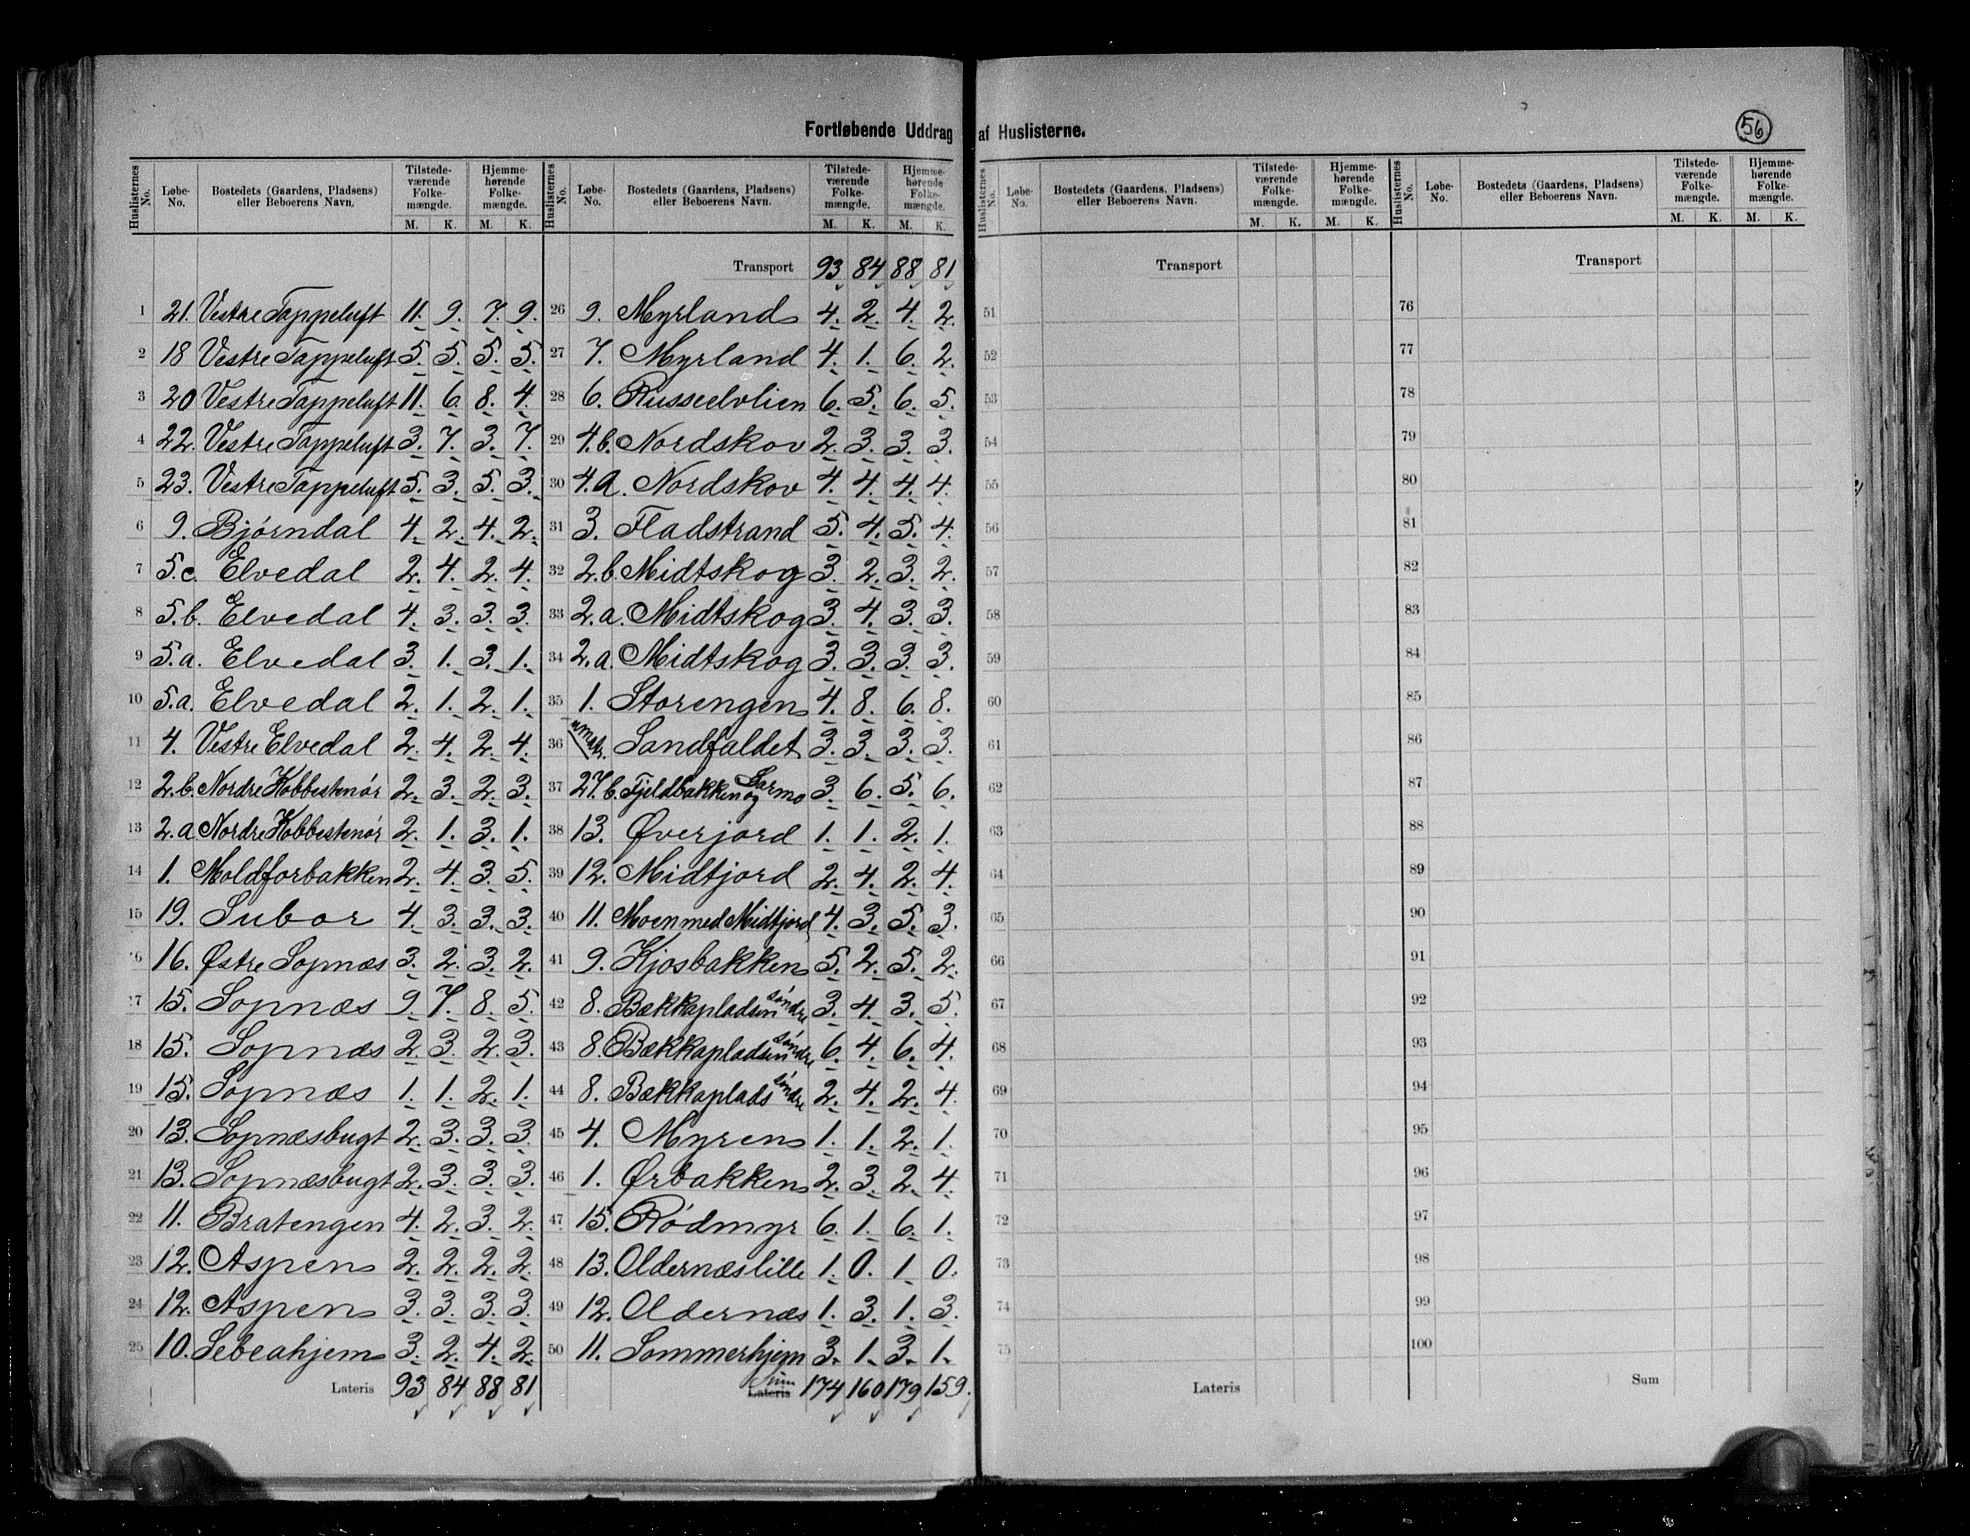 Fortløbende Uddrag af Huslisterne.
56
Huslisternes No. Løbe-No. Bostedets (Gaardens, Pladsens) eller Beboerens Navn. Tilstede-værende Folke-mængde. M. K. Hjemme-hørende Folke-mængde. M. K.
1 21. Vestre Tappeluft 11. 9. 7. 9.
2 18 Vestre Tappeluft 5. 5. 5. 5.
3 20 Vestre Tappeluft 11. 6. 8. 4.
4 22. Vestre Tappeluft 3. 7. 3. 7.
5 23. Vestre Tappeluft 5. 3. 5. 3.
6 9. Bjørndal 4. 2. 4. 2.
7 5.c. Elvedal 2. 4. 2. 4.
8 5.b. Elvedal 4. 3. 3. 3.
9 5.a. Elvedal 3. 1. 3. 1.
10 5.a. Elvedal 2. 1. 2. 1.
11 4. Vestre Elvedal 2. 4. 2. 4.
12 2.b. Nordre Kobbestenør 2. 3. 2. 3.
13 2.a Nordre Kobbestenør 2. 1. 3. 1.
14 1. Moldforbakken 2. 4. 3. 5.
15 19. Subor 4. 3. 3. 3.
16 16. Østre Sopnæs 3. 2. 3. 2.
17 15. Sopnæs 9. 7. 8. 5.
18 15. Sopnæs 2. 3. 2. 3.
19 15. Sopnæs 1. 1. 2. 1.
20 13. Sopnæsbugt 2. 3. 3. 3.
21 13. Sopnæsbugt 2. 3. 3. 3.
22 11. Bratengen 4. 2. 3. 2.
23 12. Aspen 2. 2. 2. 2.
24 12. Aspen 3. 3. 3. 3.
25 10. Sebeahjem 3. 2. 4. 2.
Lateris 93 84 88 81
Huslisternes No. Løbe-No. Bostedets (Gaardens, Pladsens) eller Beboerens Navn. Tilstede-værende Folke-mængde. M. K. Hjemme-hørende Folke-mængde. M. K.
Transport 93 84 88 81
26 9. Myrland 4. 2. 4. 2.
27 7. Myrland 4. 1. 6. 2.
28 6. Russeelvlien 6. 5. 6. 5.
29 4.b. Nordskov 2. 3. 3. 3.
30 4.a. Nordskov 4. 4. 4. 4.
31 3. Fladstrand 5. 4. 5. 4.
32 2.b. Midtskog 3. 2. 3. 2.
33 2.a. Midtskog 3. 4. 3. 3.
34 2.a. Midtskog 3. 3. 3. 3.
35 1. Storengen 4. 8. 6. 8.
36 umatr. Sandfaldet 3. 3. 3. 3.
37 27.b. Fjeldbakken og Sarmo 3. 6. 5. 6.
38 13. Øverjord 1. 1. 2. 1.
39 12. Midtjord 2. 4. 2. 4.
40 11. Moen med Midtjord 4. 3. 5. 3.
41 9. Kjosbakken 5. 2. 5. 2.
42 8. Bækkapladsen søndre 3. 4. 3. 5.
43 8. Bækkapladsen søndre 6. 4. 6. 4.
44 8. Bækkaplads søndre 2. 4. 2. 4.
45 4. Myren 1. 1. 2. 1.
46 1. Ørbakken 2. 3. 2. 4.
47 15. Rødmyr 6. 1. 6. 1.
48 13. Oldernæslille 1. 0. 1. 0.
49 12. Oldernæs 1. 3. 1. 3.
50 11. Sommerhjem 3. 1. 3. 1.
Sum
Lateris 174 160 179 159.
Huslisternes No. Løbe-No. Bostedets (Gaardens, Pladsens) eller Beboerens Navn. Tilstede-værende Folke-mængde. M. K. Hjemme-hørende Folke-mængde. M. K.
Transport
51
52
53
54
55
56
57
58
59
60
61
62
63
64
65
66
67
68
69
70
71
72
73
74
75
Lateris
Huslisternes No. Løbe-No. Bostedets (Gaardens, Pladsens) eller Beboerens Navn. Tilstede-værende Folke-mængde. M. K. Hjemme-hørende Folke-mængde. M. K.
Transport
76
77
78
79
80
81
82
83
84
85
86
87
88
89
90
91
92
93
94
95
96
97
98
99
100
Sum